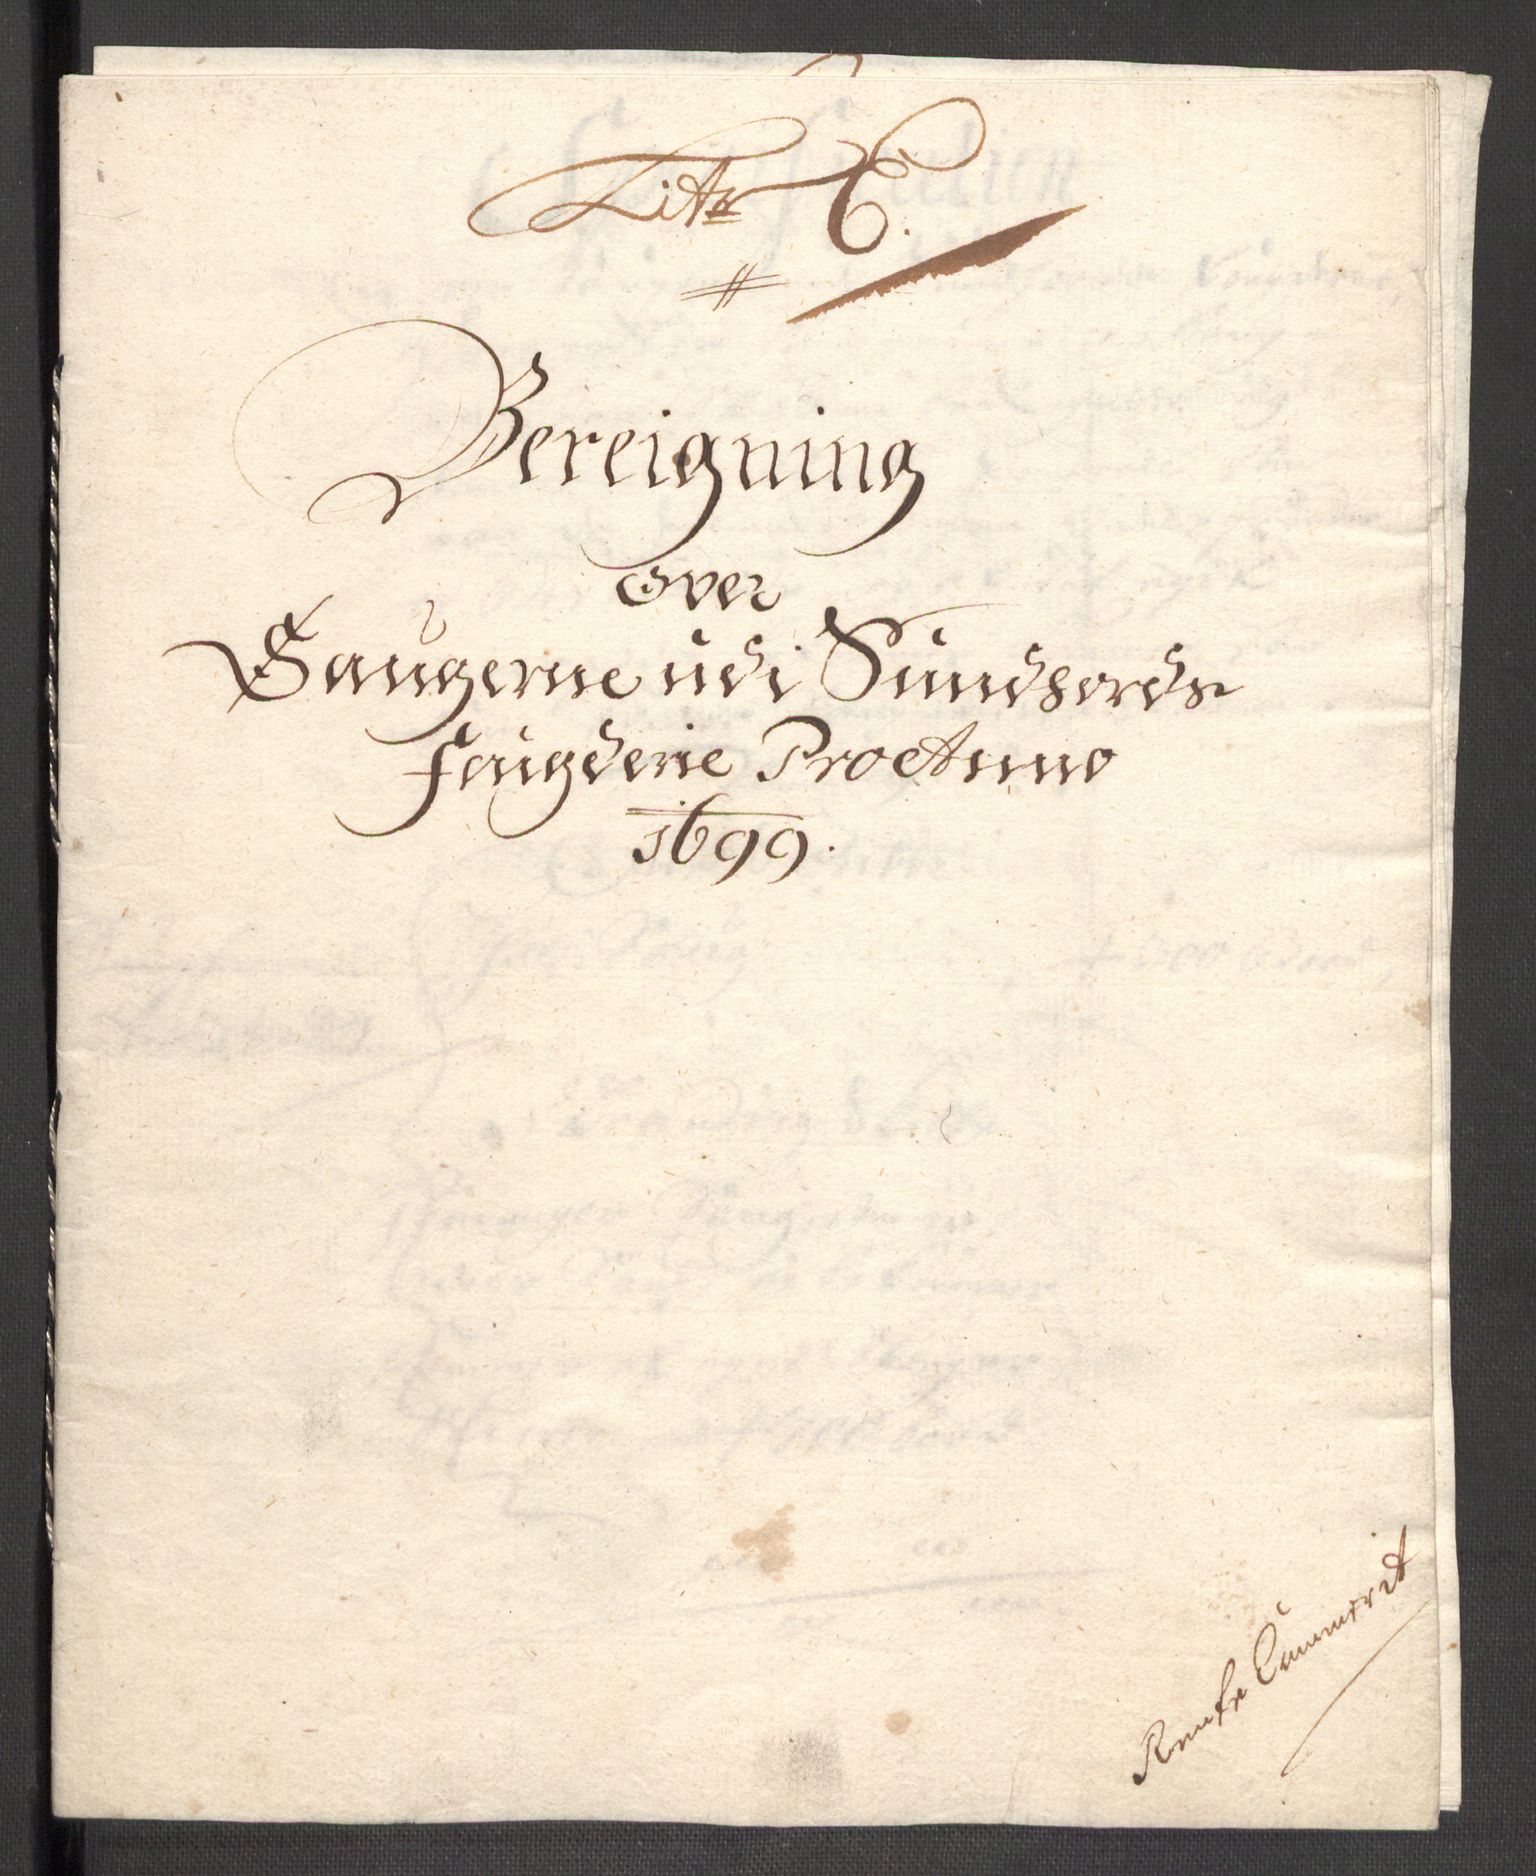 Litr E.
Bereigning
over
Saugerne udi Sundhords
fougderie Pro Anno
1699.
Rente Cammerit